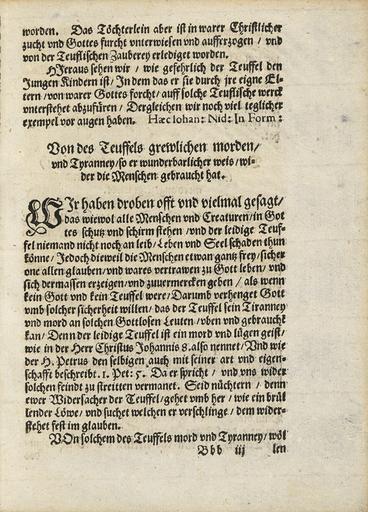 worden. Das Töchterlein aber ist in warer Christlicher
zucht vnd Gottes furcht vnterwiesen vnd aufferzogen / vnd
von der Teuflischen Zauberey erlediget worden.
HIeraus sehen wir / wie gefehrlich der Teuffel den
Jungen Kindern ist / In dem das er sie durch jre eigne El-
tern / von warer Gottes forcht / auff solche Teuflische werck
vnterstehet abzufüren / Dergleichen wir noch viel teglicher
exempel vor augen haben. Hæc Iohan: Nid: In Form:
Von des Teuffels grewlichen morden /
vnd Tyranney / so er wunderbarlicher weis / wi-
der die Menschen gebraucht hat.
WIr haben droben offt vnd vielmal gesagt /
das wiewol alle Menschen vnd Creaturen / in Got
tes schutz vnd schirm stehen / vnd der leidige Teuf-
fel niemand nicht noch an leib / Leben vnd Seel schaden thun
könne / Jedoch dieweil die Menschen etwan gantz frey / sicher
one allen glauben / vnd wares vertrawen zu Gott leben / vnd
sich dermassen erzeigen / vnd zuuermercken geben / als wenn
kein Gott vnd kein Teuffel were / Darumb verhenget Gott
vmb solcher sicherheit willen / das der Teuffel sein Tiranney
vnd mord an solchen Gottlosen Leuten / vben vnd gebrauchē
kan / Denn der leidige Teuffel ist ein mord vnd lügen geist /
wie in der Herr Christus Johannis 8. also nennet / Vnd wie
der H. Petrus den selbigen auch mit seiner art vnd eigen-
schafft beschreibet. 1. Pet: 5. Da er spricht / vnd vns wider
solchen feindt zu streitten vermanet. Seid nüchtern / denn
ewer Widersacher der Teuffel / gehet vmb her / wie ein brül
lender Löwe / vnd suchet welchen er verschlinge / dem wider-
stehet fest im glauben.
VOn solchem des Teuffels mord vnd Tyranney / wöl
Bbb iij len